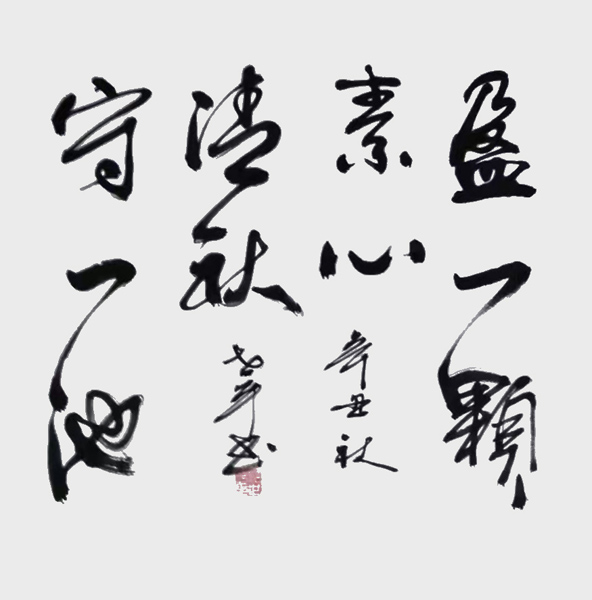 盈一顆
素心
守一池
清秋
辛丑秋
书